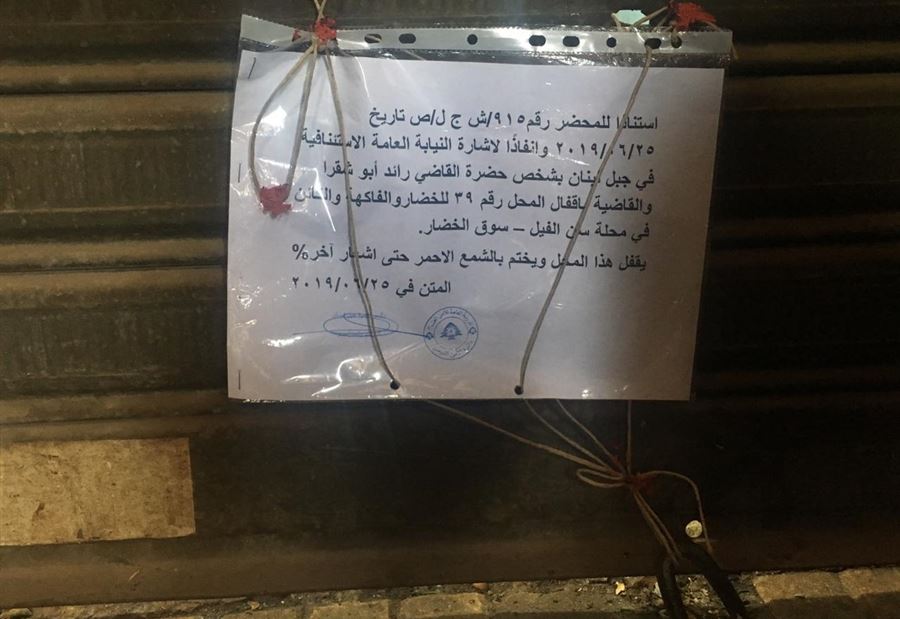 استنادا للمحضر رقم ٩١٥/ش ج ل/ص تاريخ
٢٠١٩/٠٦/٢٥ وإنفاذًا لاشارة النيابة العامة الاستئنافية
في جبل لبنان بشخص حضرة القاضي رائد أبو شقرا
والقاضية باقفال المحل رقم ٣٩ للخضار والفاكهة والكائن
في محلة سن الفيل – سوق الخضار.
يقفل هذا المحل ويختم بالشمع الاحمر حتى اشعار آخر%
المتن في ٢٠١٩/٠٦/٢٥